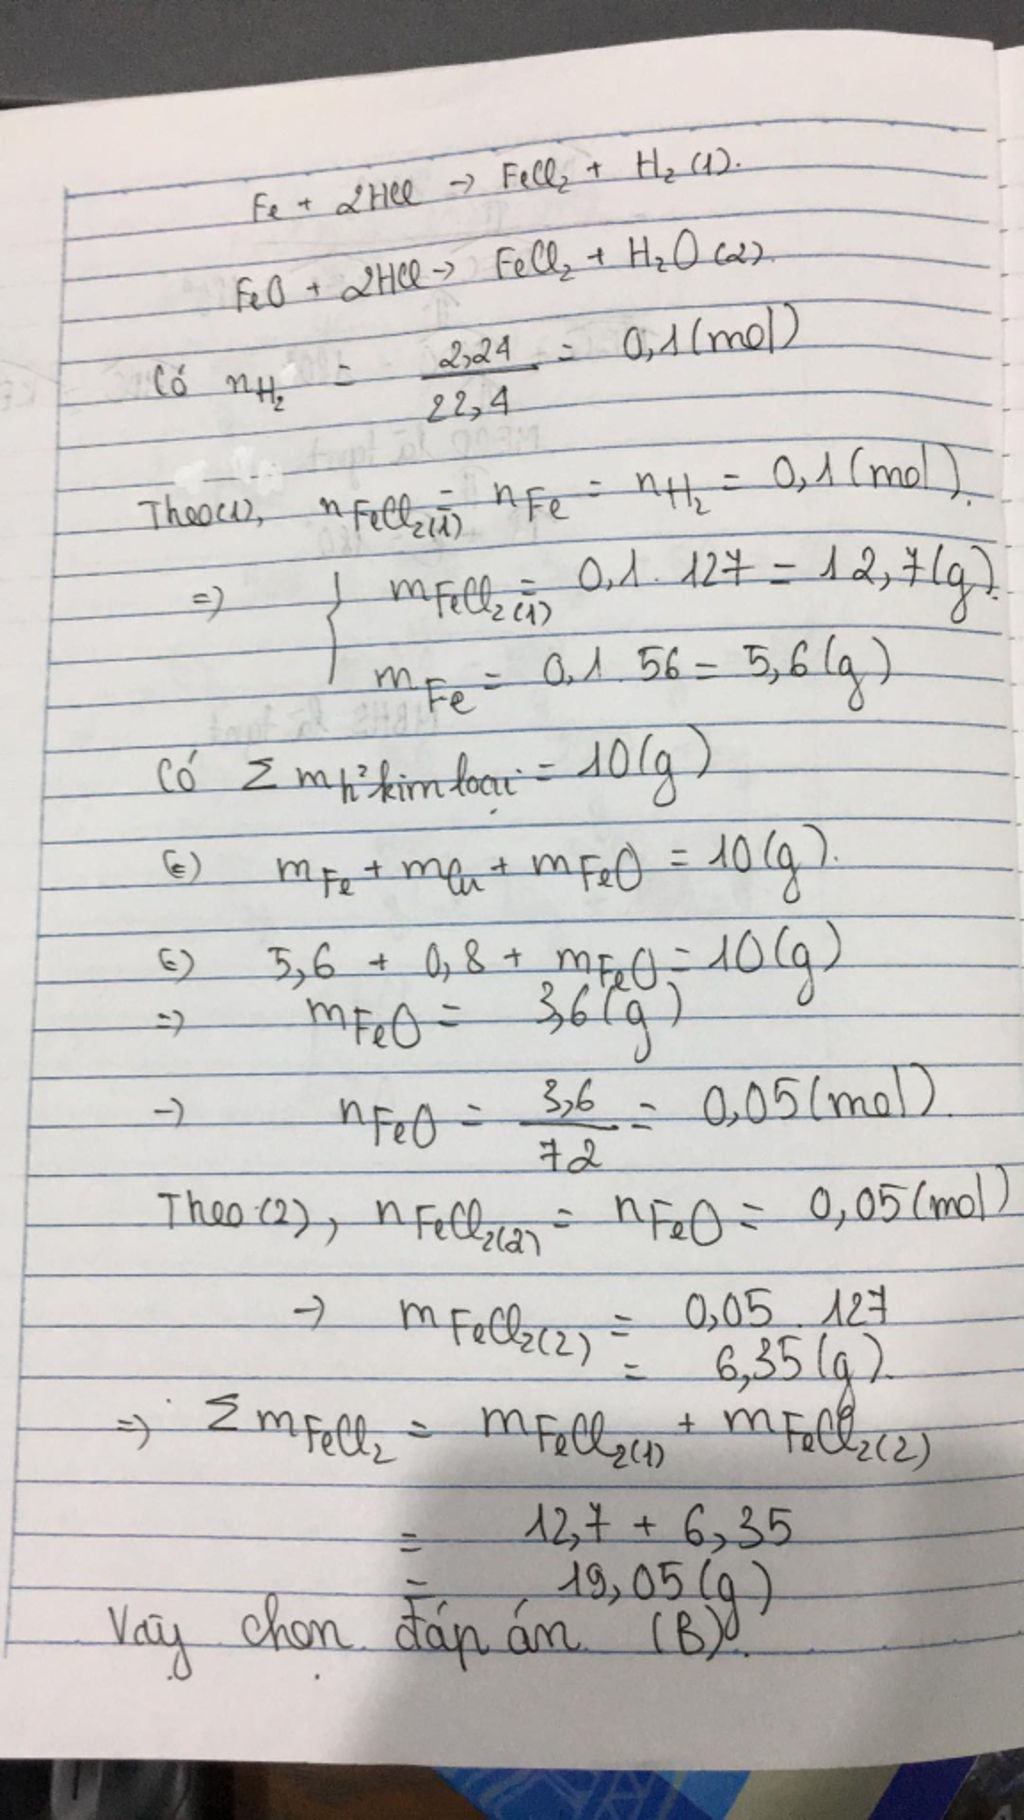 Fe + 2HCl → FeCl₂ + H₂ (1).
FeO + 2HCl → FeCl₂ + H₂O (2).
Có n H₂ = 2,24 / 22,4 = 0,1 (mol)
Theo (1), n FeCl₂(1) = n Fe = n H₂ = 0,1 (mol).
=> { m FeCl₂(1) = 0,1 . 127 = 12,7 (g).
m Fe = 0,1 . 56 = 5,6 (g)
Có Σ m h² kim loại = 10 (g)
(=) m Fe + m Cu + m FeO = 10 (g).
(=) 5,6 + 0,8 + m FeO = 10 (g)
=> m FeO = 3,6 (g)
→ n FeO = 3,6 / 72 = 0,05 (mol).
Theo (2), n FeCl₂(2) = n FeO = 0,05 (mol)
→ m FeCl₂(2) = 0,05 . 127
= 6,35 (g).
=> Σ m FeCl₂ = m FeCl₂(1) + m FeCl₂(2)
= 12,7 + 6,35
= 19,05 (g)
Vậy chọn đáp án (B).